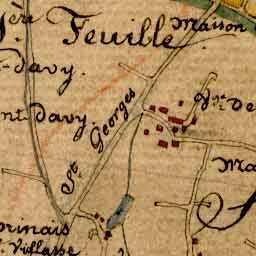 Feuille
Maison
t-davy.
nt-Davy.
St Georges
Ma
prinais
Villasse